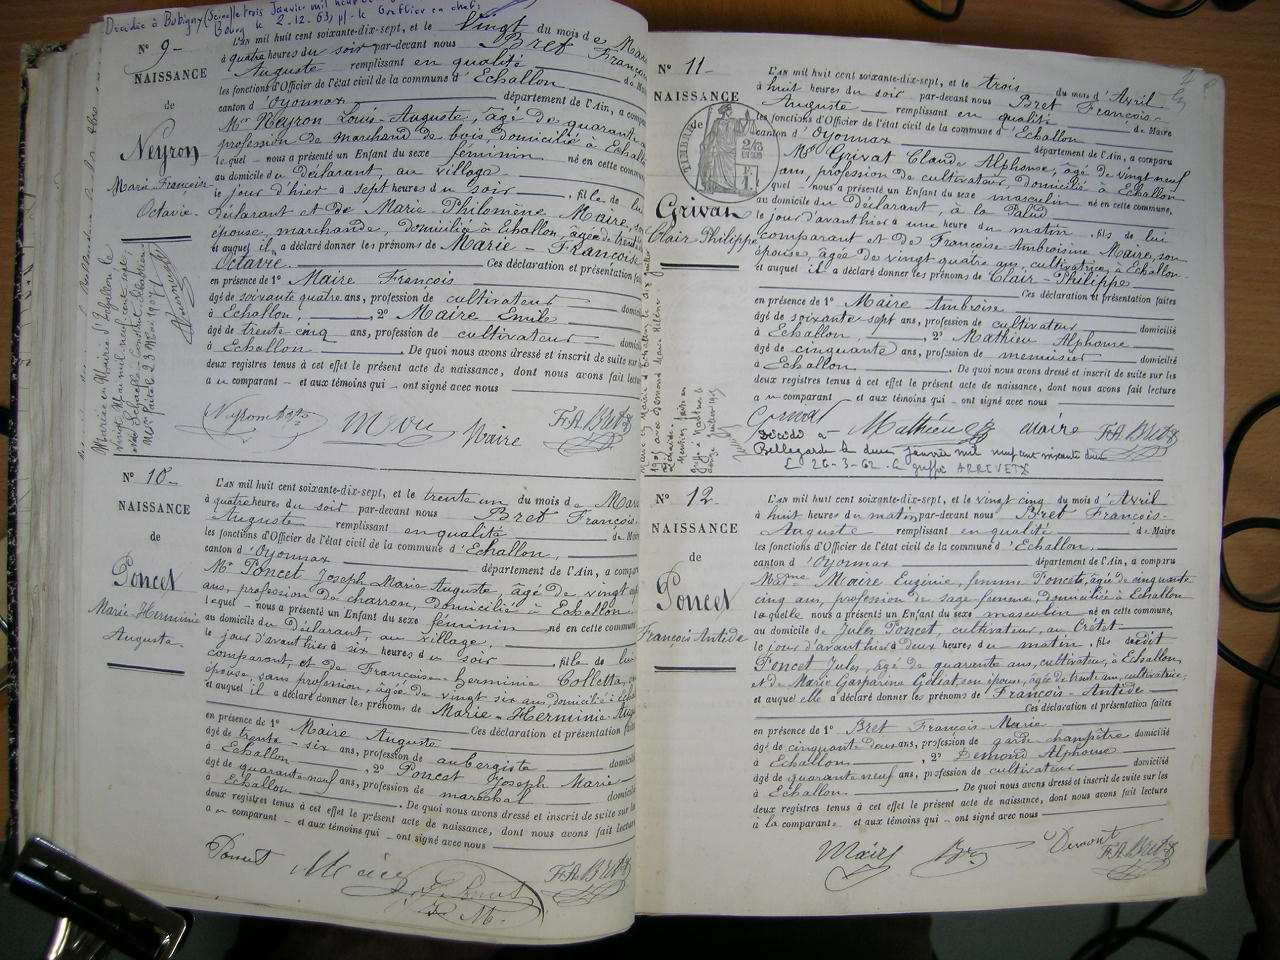 Décédée à Bobigny (Seine) le trois Janvier mil neuf
Bourg le 2-12-63, p/ le Greffier en chef:
N° 9
NAISSANCE
de
Neyron
Marie Françoise
Octavie
L'an mil huit cent soixante-dix-sept, et le vingt du mois de Mars
à quatre heures du soir par-devant nous Bret François
Auguste remplissant en qualité de Maire
les fonctions d'Officier de l'état civil de la commune d'Echallon
canton d'Oyonnax département de l'Ain, a comparu
Mr Neyron Louis-Auguste, âgé de quarante
profession de marchand de bois, domicilié à Echallon
lequel nous a présenté un Enfant du sexe féminin né en cette commune
au domicile du Déclarant, au village
le jour d'hier à sept heures du soir, fille de lui
Déclarant et de Marie Philomène Maire, son
épouse, marchande, domiciliée à Echallon, âgée de trente
et auquel il a déclaré donner les prénoms de Marie-Françoise
Octavie. Ces déclaration et présentation faites
en présence de 1° Maire François
âgé de soixante quatre ans, profession de cultivateur domicilié
à Echallon, 2° Maire Emile
âgé de trente cinq ans, profession de cultivateur domicilié
à Echallon. De quoi nous avons dressé et inscrit de suite sur
deux registres tenus à cet effet le présent acte de naissance, dont nous avons fait lecture
au comparant et aux témoins qui ont signé avec nous
Maire
F.A. Bret
N° 10
NAISSANCE
de
Poncet
Marie-Herminie
Augusta
L'an mil huit cent soixante-dix-sept, et le trente un du mois de Mars
à quatre heures du soir par-devant nous Bret François-
Auguste remplissant en qualité de Maire
les fonctions d'Officier de l'état civil de la commune d'Echallon,
canton d'Oyonnax département de l'Ain, a comparu
Mr Poncet Joseph Marie Auguste, âgé de vingt
ans, profession de charron, domicilié à Echallon
lequel nous a présenté un Enfant du sexe féminin né en cette commune
au domicile du Déclarant, au village,
le jour d'avant hier à six heures du soir, fille de lui
comparant, et de Françoise-Herminie Colletta, son
épouse, sans profession, âgée de vingt six ans, domiciliée à Echallon
et auquel il a déclaré donner les prénoms de Marie-Herminie-Augusta
Ces déclaration et présentation faites
en présence de 1° Maire Auguste
âgé de trente-six ans, profession de aubergiste domicilié
à Echallon, 2° Poncet Joseph Marie
âgé de quarante-neuf ans, profession de maréchal domicilié
à Echallon. De quoi nous avons dressé et inscrit de suite sur les
deux registres tenus à cet effet le présent acte de naissance, dont nous avons fait lecture
au comparant et aux témoins qui ont signé avec nous
Poncet Maire
F.A. Bret
N° 11
NAISSANCE
Grivat
Clair Philippe
L'an mil huit cent soixante-dix-sept, et le trois du mois d'Avril
à huit heures du soir par-devant nous Bret François-
Auguste remplissant en qualité de Maire
les fonctions d'Officier de l'état civil de la commune d'Echallon
canton d'Oyonnax département de l'Ain, a comparu
Mr Grivat Claude Alphonse, âgé de vingt neuf
ans, profession de cultivateur, domicilié à Echallon
lequel nous a présenté un Enfant du sexe masculin né en cette commune,
au domicile du Déclarant, à la Palud
le jour d'avant hier à une heure du matin, fils de lui
comparant et de Françoise Ambroisine Maire, son
épouse, âgée de vingt quatre ans, cultivatrice, à Echallon
et auquel il a déclaré donner les prénoms de Clair-Philippe
Ces déclaration et présentation faites
en présence de 1° Maire Ambroise
âgé de soixante-sept ans, profession de cultivateur domicilié
à Echallon, 2° Mathieu Alphonse
âgé de cinquante ans, profession de menuisier domicilié
à Echallon. De quoi nous avons dressé et inscrit de suite sur les
deux registres tenus à cet effet le présent acte de naissance, dont nous avons fait lecture
au comparant et aux témoins qui ont signé avec nous
Grivat Mathieu Maire F.A. Bret
Décédé à
Bellegarde le deux janvier mil neuf cent soixante deux
L 26-3-62
N° 12
NAISSANCE
de
Poncet
François-Antide
L'an mil huit cent soixante-dix-sept, et le vingt cinq du mois d'Avril
à huit heures du matin par-devant nous Bret François-
Auguste remplissant en qualité de Maire
les fonctions d'Officier de l'état civil de la commune d'Echallon,
canton d'Oyonnax département de l'Ain, a comparu
Mme Maire Eugénie, femme Poncet, âgée de cinquante
cinq ans, profession de sage femme, domiciliée à Echallon
laquelle nous a présenté un Enfant du sexe masculin né en cette commune,
au domicile de Jules Poncet, cultivateur, au Crétet
le jour d'avant hier à deux heures du matin, fils dudit
Poncet Jules, âgé de quarante ans, cultivateur, à Echallon
et de Marie Gasparine son épouse, âgée de trente un ans, cultivatrice;
et auquel elle a déclaré donner les prénoms de François-Antide
Ces déclaration et présentation faites
en présence de 1° Bret François-Marie
âgé de cinquante deux ans, profession de garde champêtre domicilié
à Echallon, 2° Demond Alphonse
âgé de quarante neuf ans, profession de cultivateur domicilié
à Echallon. De quoi nous avons dressé et inscrit de suite sur les
deux registres tenus à cet effet le présent acte de naissance, dont nous avons fait lecture
à la comparante et aux témoins qui ont signé avec nous
Maire Bret Demont F.A. Bret